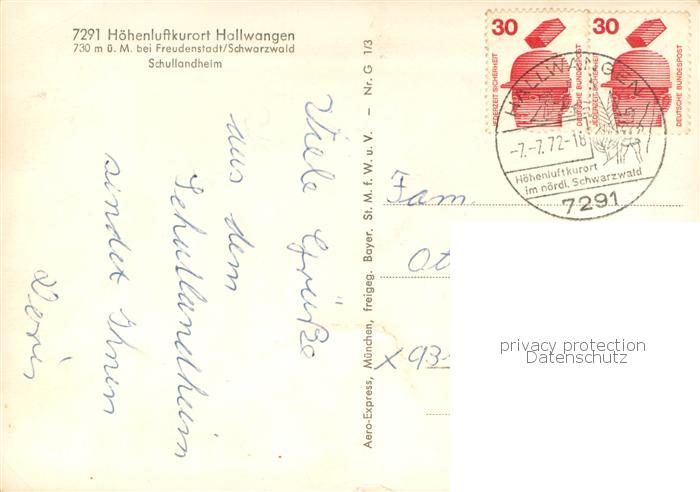 7291 Höhenluftkurort Hallwangen
730 m ü. M. bei Freudenstadt/Schwarzwald
Schullandheim
Viele Grüße
aus dem
Schullandheim
sindet Ihnen
Doris
Aero-Express, München, freigeg. Bayer. St. M. f. W. u. V. – Nr. G 1/3
30
JEDERZEIT SICHERHEIT
DEUTSCHE BUNDESPOST
30
JEDERZEIT SICHERHEIT
DEUTSCHE BUNDESPOST
HALLWANGEN
-7.-7.72-18
Höhenluftkurort
im nördl. Schwarzwald
7291
Fam.
Ot
X 93
privacy protection
Datenschutz